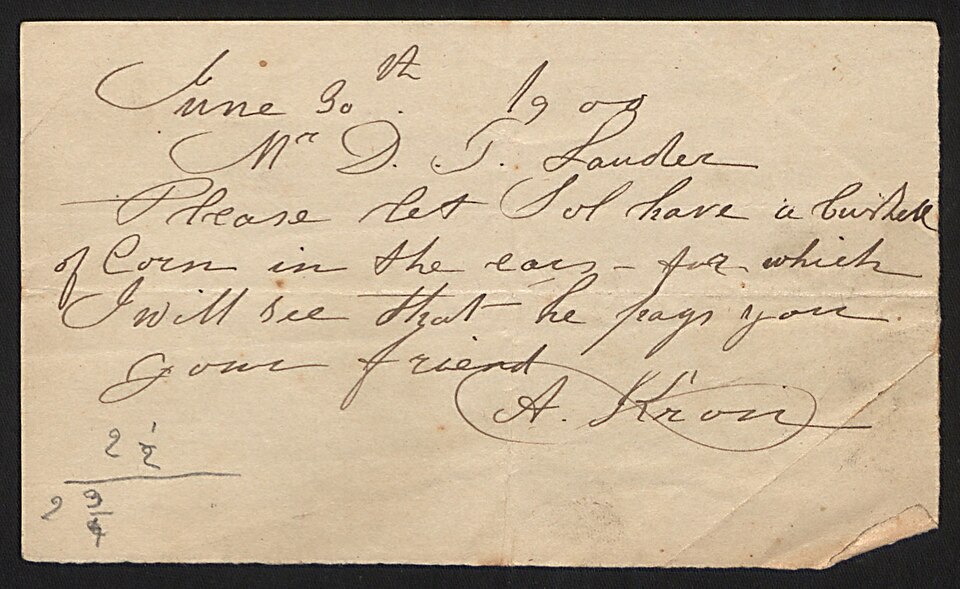 June 30th. 1900
Mr D. T. Lauder
Please let Sol have a bushell
of Corn in the ears - for which
I will see that he pays you.
your friend
A. Kron
2 1/2
2 3/4